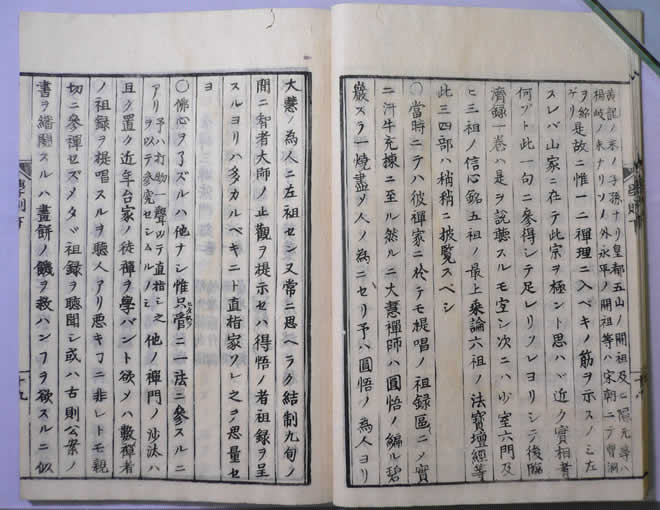 黄龍ノ末ノ子孫ナリ皇都五山ノ開祖及ヒ隠元等ハ
楊岐ノ末ナリソノ外永平ノ開祖等ハ宋朝ニテ曹洞
ヲ是故ニ惟一ニ禪理ニ入ベキノ筋ヲ示スノミ左
スレバ山家ニ在テ此宗ヲ極ント思ハヾ近ク實相者
何ゾト此一句ニ參得シテ足レリソレヨリシテ後臨
濟録一卷ハ是ヲ説聽スルモ宜シ次ニハ少室六門及
ヒ三祖ノ信心銘五祖ノ最上乗論六祖ノ法寶壇經等
此三四部ハ稍稍ニ披覽スベシ
〇當時ニテハ彼禪家ニ於テモ提唱ノ祖録區ニメ實
ニ汗牛充棟ニ至ル然ルニ大慧禪師ハ圓悟ノ編ル碧
巖スラ一燒盡メ人ノ為ニセリ予ハ圓悟ノ為人ヨリ
大慧ノ為人ニ左祖セン又常ニ思ヘラク結制九旬ノ
間ニ智者大師ノ止觀ヲ提示セハ得悟ノ者祖録ヲ呈
スルヨリハ多カルベキニト直指家ワレ之ヲ思量セ
ヨ
〇佛心ヲ了ズルハ他ナシ惟只管ニ一法ニ參スルニ
アリ予ハ打物一聲以テ直指之他ノ禪門ノ沙汰ハ
ヲ以テ參究セシムルノミ
且ク置ク近年台家ノ徒禪ヲ學バント欲メハ數禪者
ノ祖録ヲ提唱スルヲ聽人アリ悪キヿニ非レトモ親
切ニ參禪セズメタヾ祖録ヲ聽聞シ或ハ古則公案ノ
書ヲ繙閲スルハ畫餅ノ饑ヲ救ハンヿヲ欲スルニ似